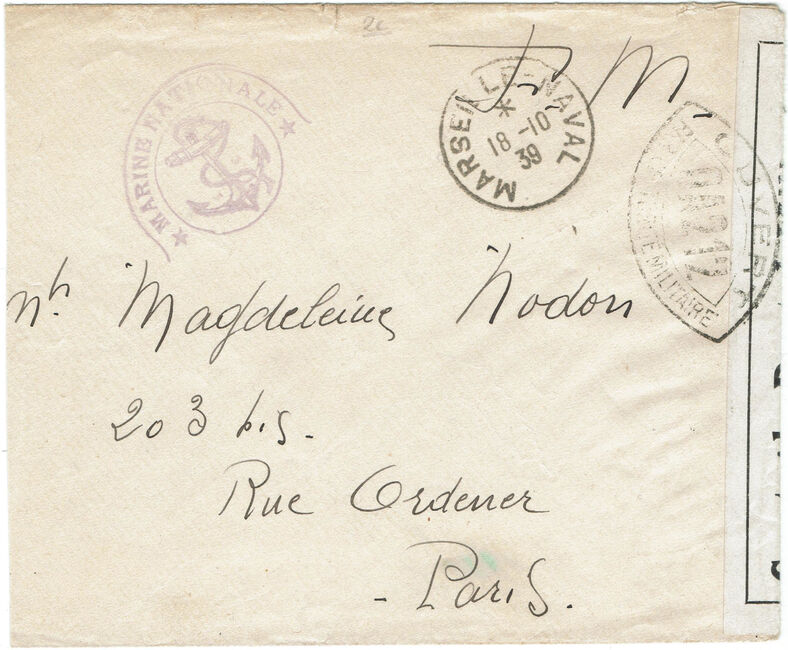 2c
F. M.
★ MARINE NATIONALE ★
MARSEILLE-NAVAL
*
18 -10
39
OUVERT
MILITAIRE
Magdeleine Nodon
203 bis.
Rue Ordener
- Paris.